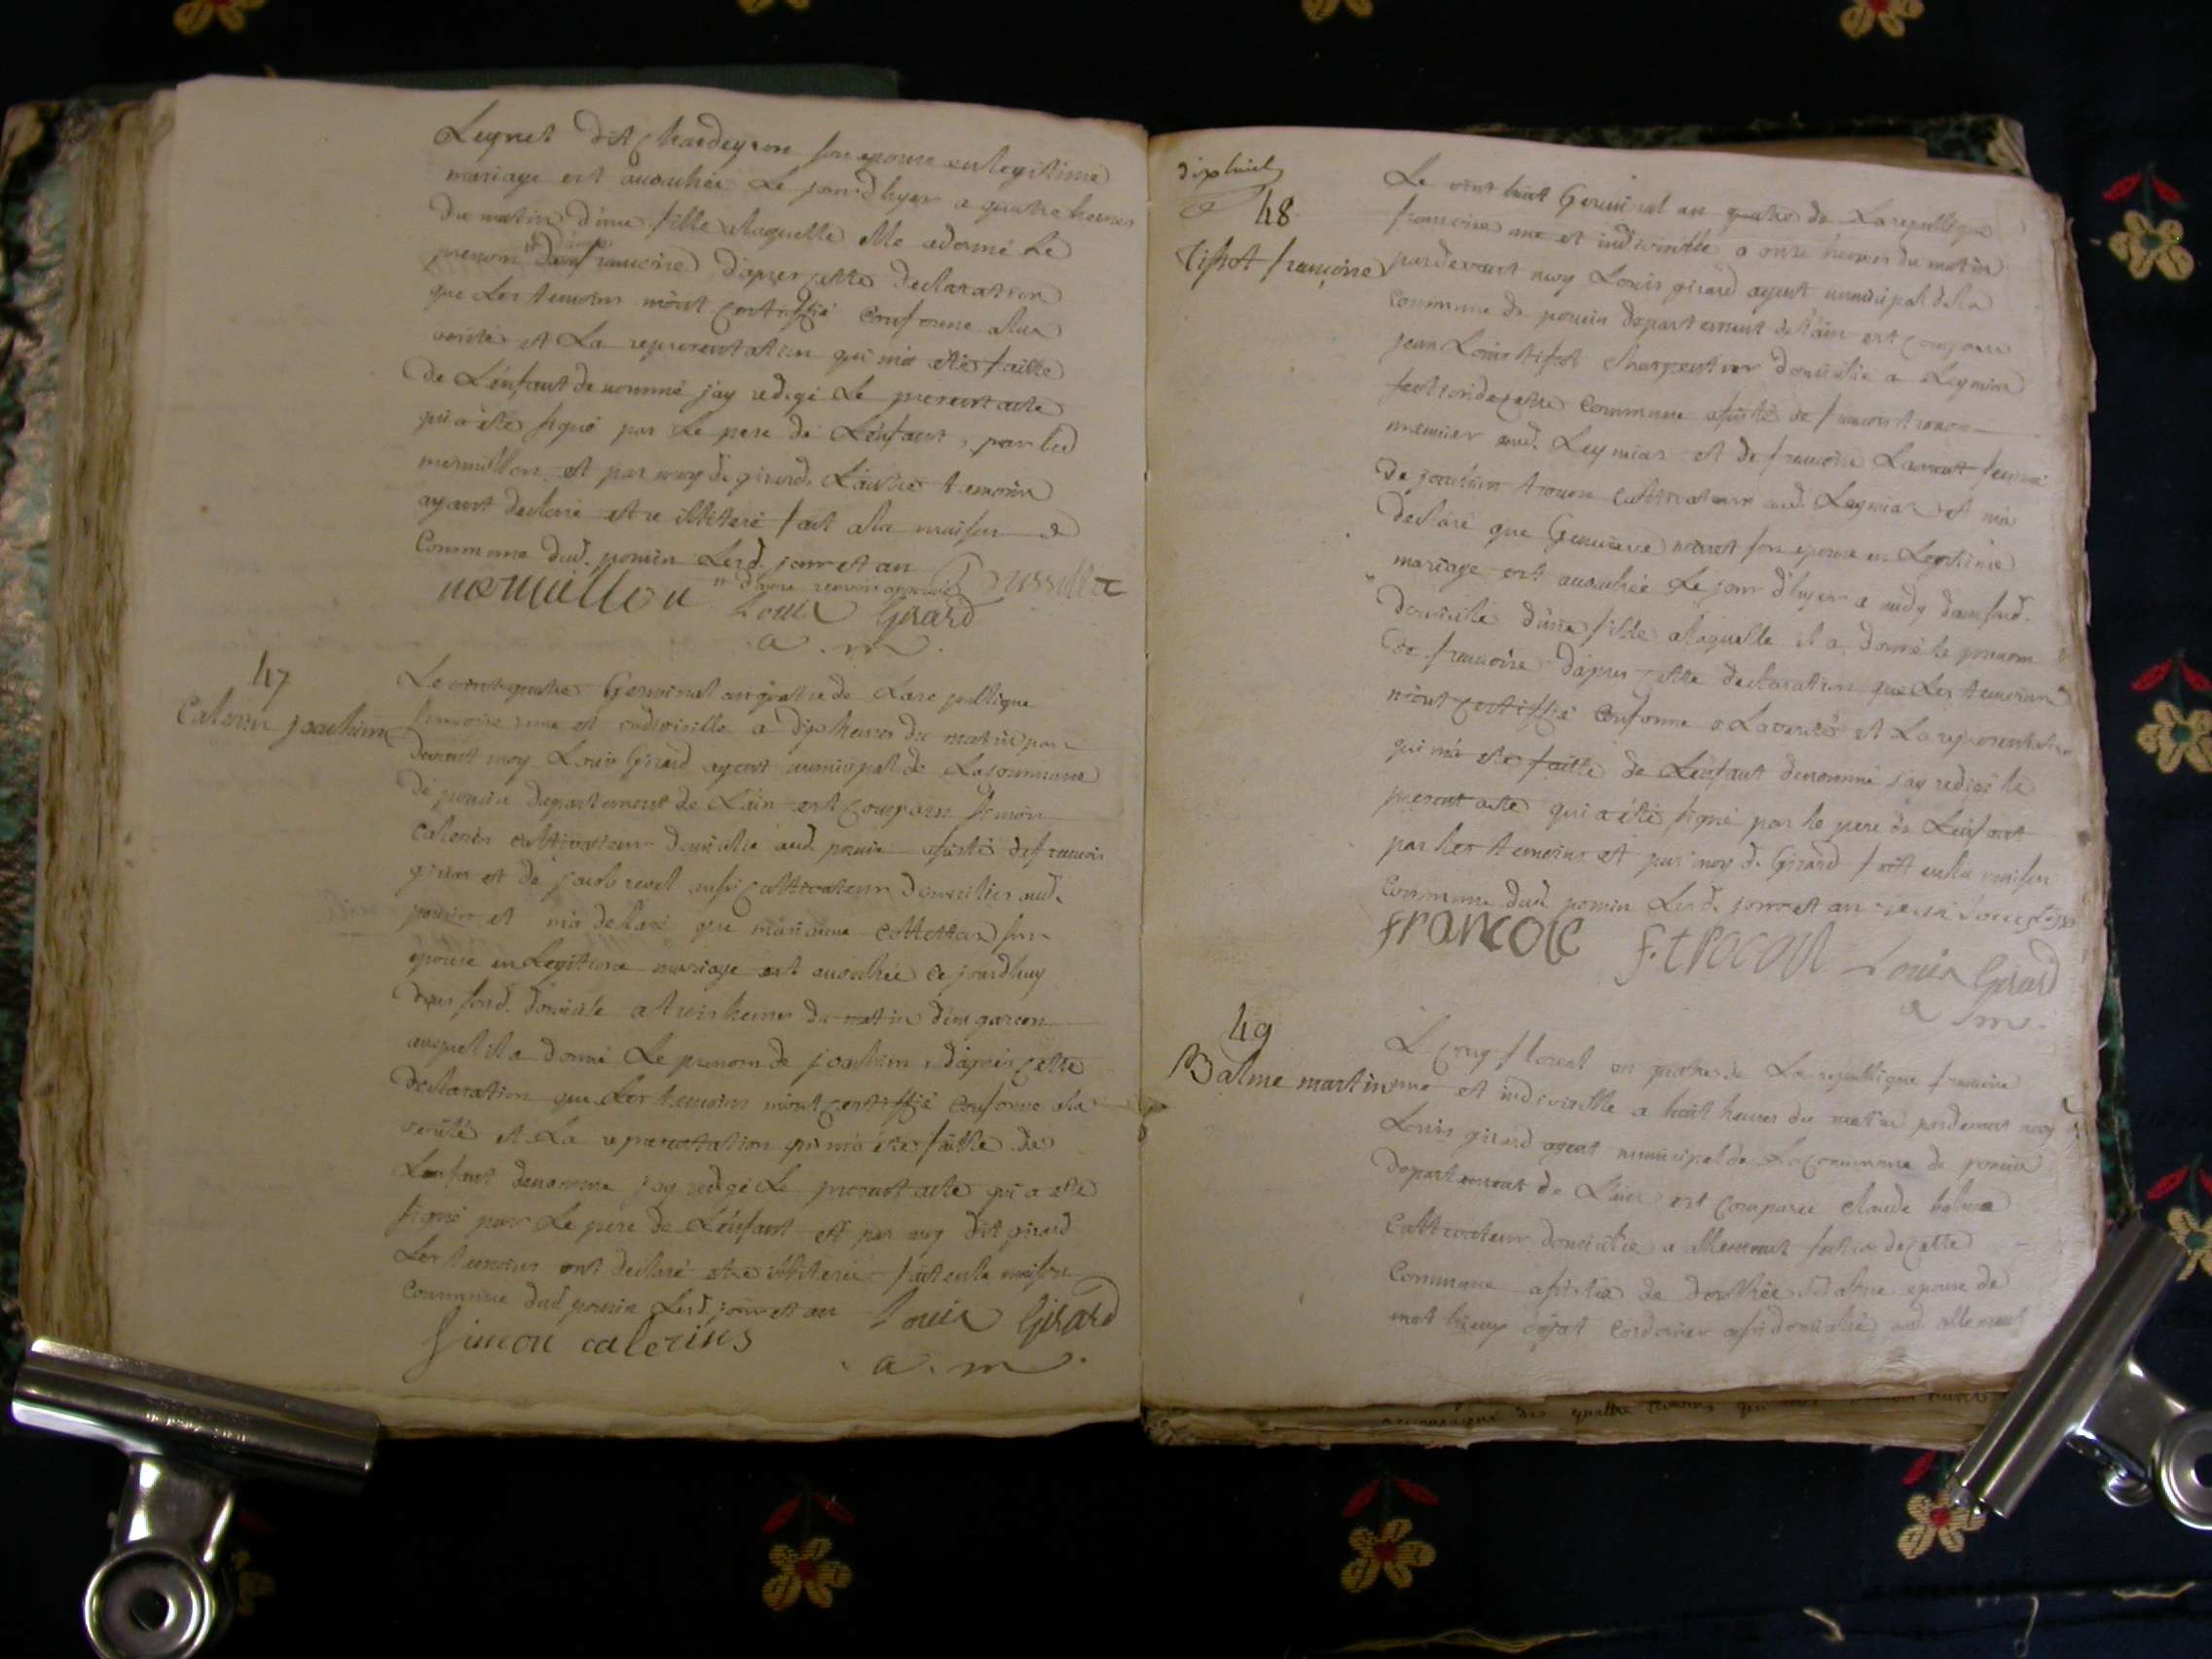 Leynet dit Chardeyron son epouse en legitime
mariage est auouchée Le jour d'hyer a quatre heures
Du matin d'une fille alaquelle elle a donné Le
prenom francoise d'apres cette declaration
que Les temoins m'ont certiffié conforme alla
verité et La representation qui m'a été faitte
De L'enfant denommé j'ay redigé Le present acte
qui a été signé par Le pere de L'enfant, par led
mermillon et par moy d. girard, L'autre temoin
ayant declaré estre illiteré fait alla maison
Commune dud. poncin Lesd. jour et an
mermillon Louis Girard
a. m.
47
Calerin joachim
Le vint quatre Germinal an quatre de La republique
francoise une et indivisible a dix heures du matin par
devant moy Louis Girard agent municipal de La commune
De poncin departement de L'ain est comparu simon
Calerin cultivateur domicilié aud. poncin assisté de francois
et de jacob revel aussi cultivateurs domiciliés aud.
poncin et m'a declaré que marianne son
epouse en Legitime mariage est auouchée ce jourd'huy
dans sond. domicile a trois heures du matin d'un garcon
auquel il a donné Le prenom de joachim, d'apres cette
declaration que Les temoins m'ont certiffié conforme ala
verité et La representation qui m'a été faitte de
L'enfant denommé j'ay redigé Le present acte qui a été
signé par Le pere de L'enfant et par moy dit girard
Les temoins ont declaré etre illiteré fait en la maison
Commune dud. poncin Lesd. jour et an Louis Girard
Simon calerins
a. m.
dixhuit
48
Tissot francoise
Le vint huit Germinal an quatre de La republique
francoise une et indivisible a onze heures du matin
pardevant moy Louis girard agent municipal de la
Commune de poncin departement de L'ain est comparu
jean Louis tissot charpentier domicilié a Leymia
section de cette Commune assisté de francois
meunier aud. Leymiar et de francoise Laurent femme
De joachim cultivateur aud. Leymiar et m'a
Declaré que Genevieve son epouse en Legitime
mariage est auouchée Le jour d'hyer a midy dans sond.
Domicile d'une fille alaquelle il a donné le prenom
De francoise d'apres cette declaration que Les temoins
m'ont certiffié conforme a La verité et La representation
qui m'a été faitte de L'enfant denommé j'ay redigé le
present acte qui a été signé par le pere de L'enfant
par les temoins et par moy d. Girard fait en la maison
Commune dud. poncin Lesd. jour et an
francoise Louis Girard
a. m.
49
Balme martin
Le cinq floreal an quatre de La republique francoise
une et indivisible a huit heures du matin pardevant moy
Louis girard agent municipal de La Commune de poncin
Departement de L'ain est comparu claude balme
Cultivateur domicilié a allement section de cette
Commune assisté de dorthée Balme epouse de
mathieu cordonier domicilié aud. allement